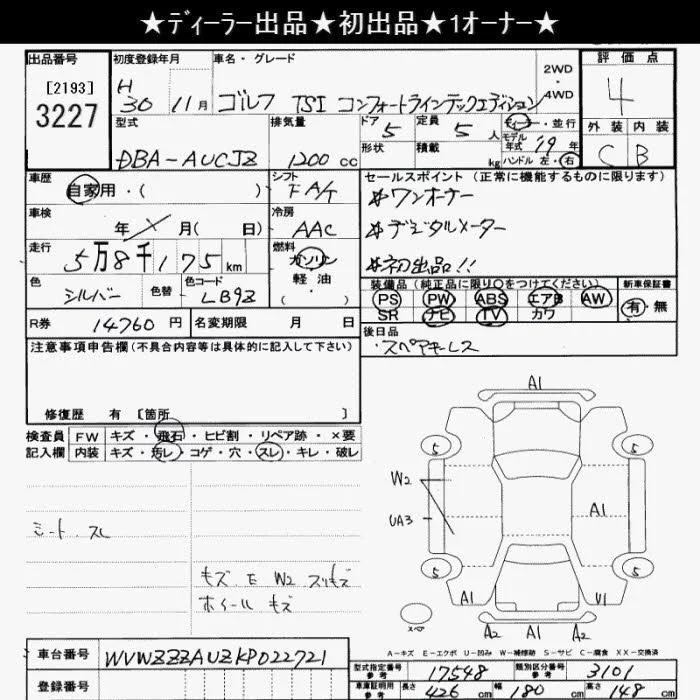 ★ディーラー出品★初出品★1オーナー★
出品番号 初度登録年月 車名・グレード 評価点
[2193] 3227 H 30 11月 ゴルフ TSI コンフォートラインテックエディション 2WD・4WD 4
型式 排気量 ドア 5 定員 5人 ディーラー・並行 外装 内装
DBA-AUCJZ 1200cc 形状 積載 kg モデル年式 19年 ハンドル 左・右 C B
車歴 シフト セールスポイント(正常に機能するものに限ります)
自家用・( ) F A/T #ワンオーナー
車検 年 月( 日) 冷房 AAC #デジタルメーター
走行 5万8千175km 燃料 ガソリン 軽・油 #初出品!!
色 シルバー 色替 色コード LB9Z
装備品(純正品に限り○をつけてください) 新車保証書
PS PW ABS エアB AW 有・無
SR ナビ TV カワ
R券 14760円 名変期限 月 日
後日品
・スペアキーレス
注意事項申告欄(不具合内容等は具体的に記入して下さい)
修復歴 有 [箇所 ]
検査員 FW キズ・飛石・ヒビ割・リペア跡・×要
記入欄 内装 キズ・汚レ・コゲ・穴・スレ・キレ・破レ
シート スレ
キズ E W2 スリキズ
ホイール キズ
A1
5 5
W2
UA3 A1
5 5
A1 V1
スペア
A2 A1 A2
A-キズ E-エクボ U-凹み W-補修跡 S-サビ C-腐食 XX-交換済
車台番号 WVWZZZAUZKP022721
登録番号
型式指定番号 参考 17548 類別区分番号 参考 3101
車庫証明用 参考 長さ 426cm 幅 180cm 高さ 148cm